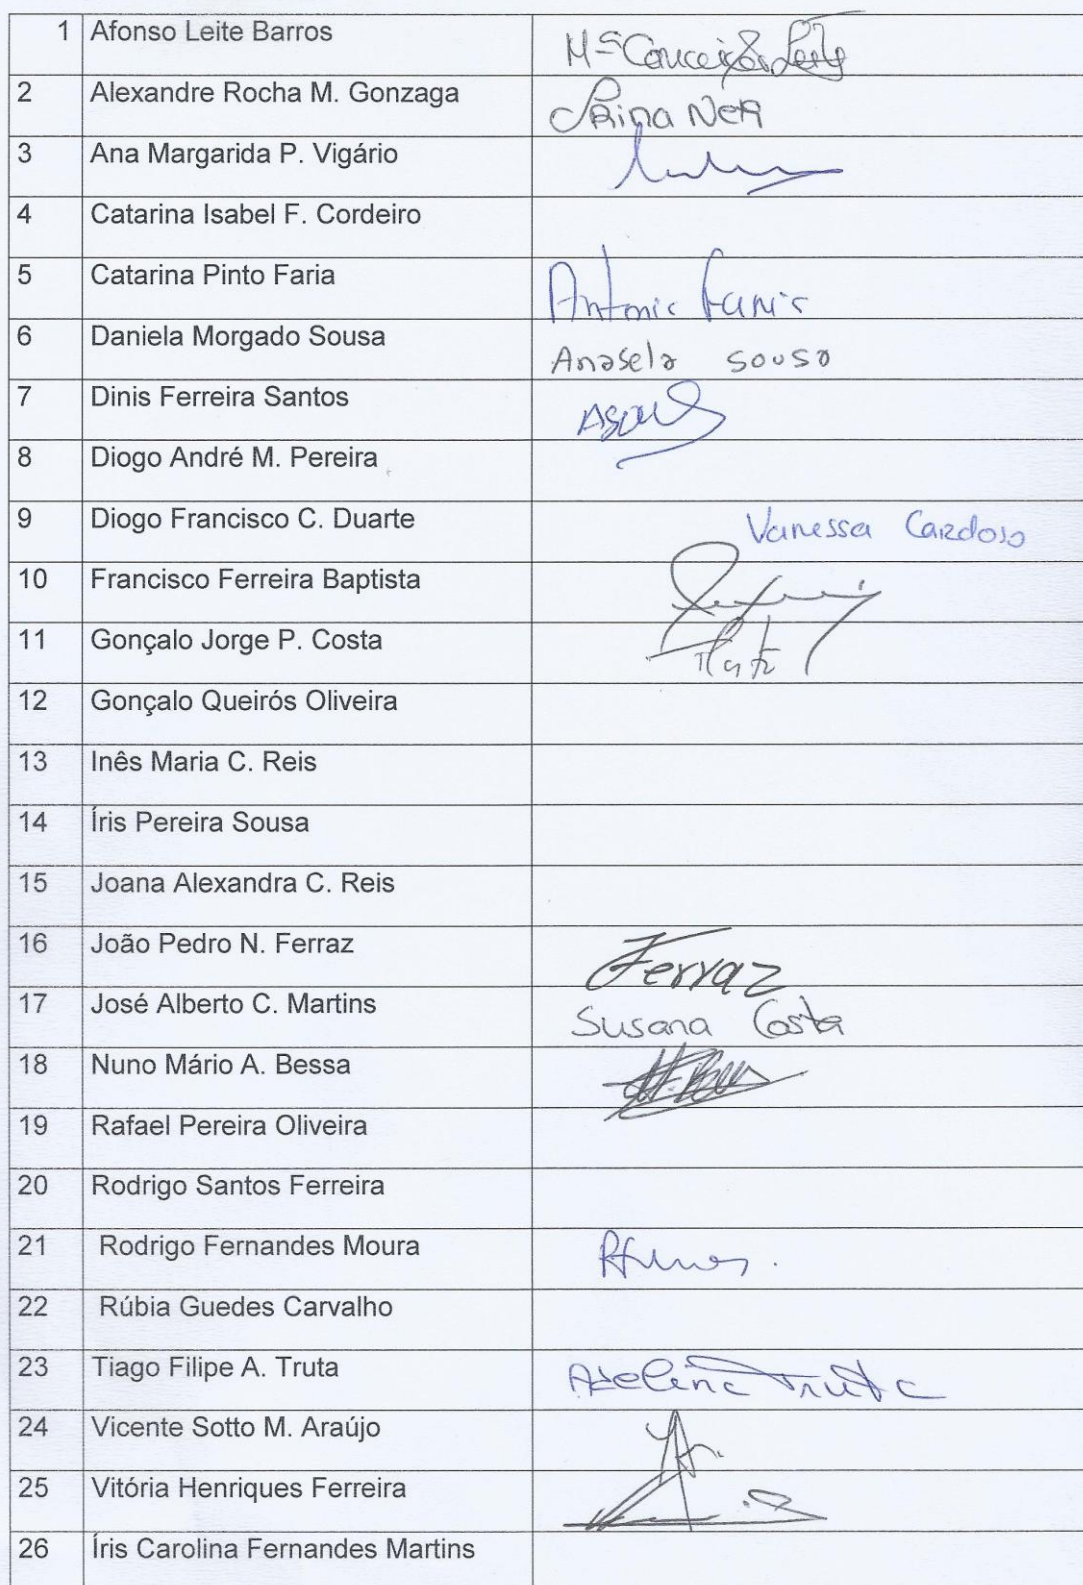 1 Afonso Leite Barros Mª Conceição Leite
2 Alexandre Rocha M. Gonzaga
3 Ana Margarida P. Vigário
4 Catarina Isabel F. Cordeiro
5 Catarina Pinto Faria
6 Daniela Morgado Sousa Anasela Sousa
7 Dinis Ferreira Santos
8 Diogo André M. Pereira
9 Diogo Francisco C. Duarte Vanessa Cardoso
10 Francisco Ferreira Baptista
11 Gonçalo Jorge P. Costa
12 Gonçalo Queirós Oliveira
13 Inês Maria C. Reis
14 Íris Pereira Sousa
15 Joana Alexandra C. Reis
16 João Pedro N. Ferraz Ferraz
17 José Alberto C. Martins Susana Costa
18 Nuno Mário A. Bessa
19 Rafael Pereira Oliveira
20 Rodrigo Santos Ferreira
21 Rodrigo Fernandes Moura
22 Rúbia Guedes Carvalho
23 Tiago Filipe A. Truta Adelina Truta
24 Vicente Sotto M. Araújo
25 Vitória Henriques Ferreira
26 Íris Carolina Fernandes Martins